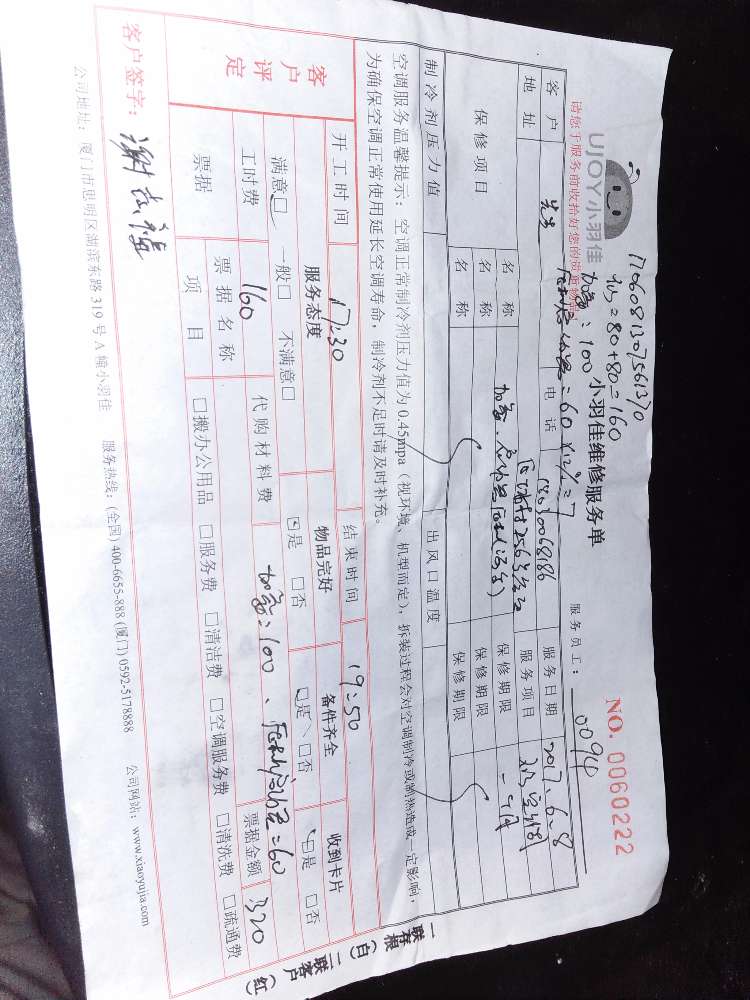 1706081307561370
=80+80=160
UJOY小羽佳
加氟:100
请您于服务前收拾好您的贵重物品!
=60
小羽佳维修服务单
NO. 0060222
服务员工: 0094
客户 先生 电话 服务日期 2017.6.8
地址 服务项目
保修项目 名称 保修期限 一个月
名称 保修期限
名称 保修期限
制冷剂压力值 出风口温度
空调服务温馨提示: 空调正常制冷剂压力值为 0.45mpa(视环境、机型而定), 拆装过程会对空调制冷或制热造成一定影响,
为确保空调正常使用延长空调寿命, 制冷剂不足时请及时补充。
开工时间 17:30 结束时间 19:50
客户评定 服务态度 物品完好 备件齐全 收到卡片
满意□ 一般□ 不满意□ □是 □否 □是 □否 □是 □否
工时费 160 代购材料费 加氟=100、 =60
票据 票据名称 票据金额 320
项目 □搬办公用品 □服务费 □清洁费 □空调服务费 □清洗费 □疏通费
客户签字:
公司地址: 厦门市思明区湖滨东路 319 号 A 幢小羽佳 服务热线: (全国) 400-6655-888 (厦门) 0592-5178888 公司网站: www.xiaoyujia.com
一联存根(白) 二联客户(红)